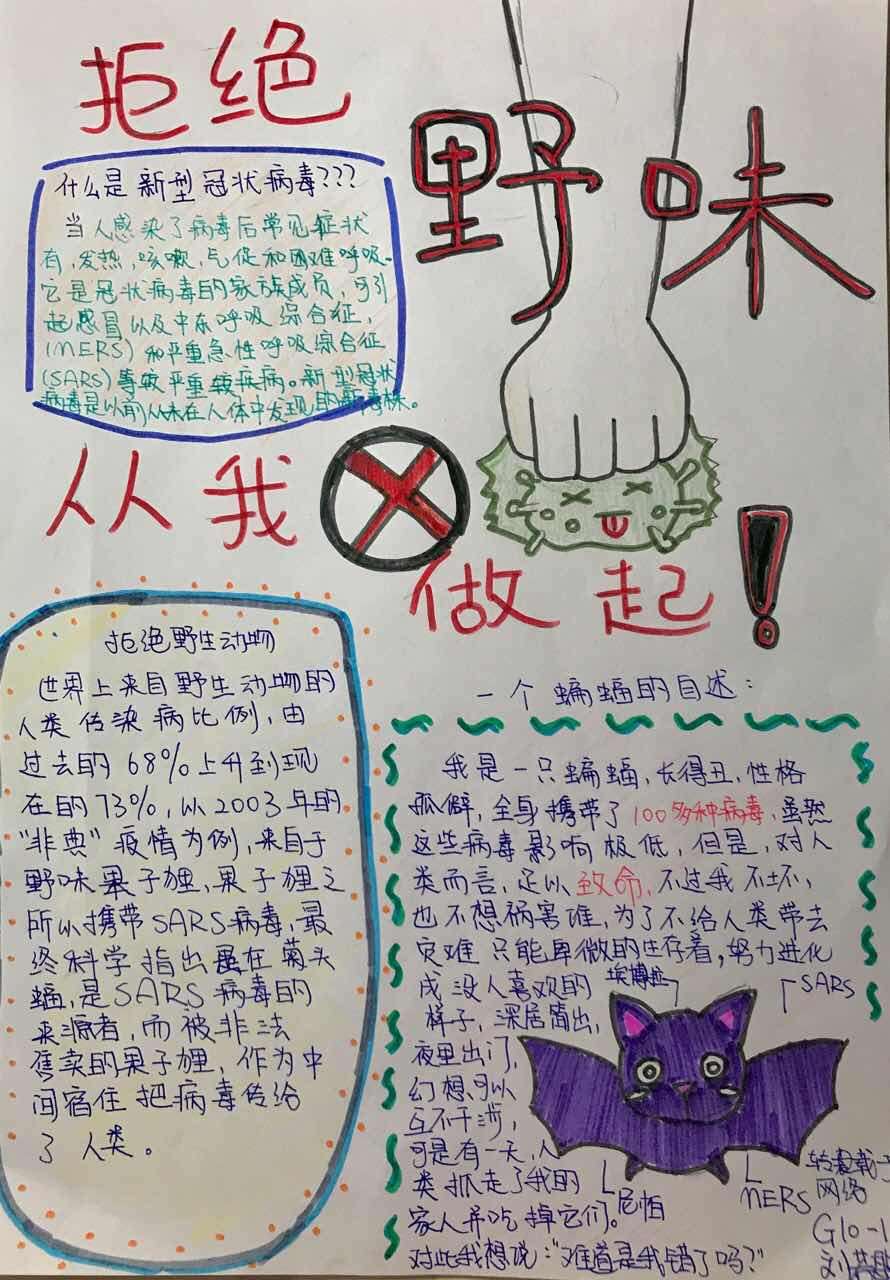 拒绝
野味
什么是新型冠状病毒???
当人感染了病毒后常见症状
有,发热,咳嗽,气促和困难呼吸.
它是冠状病毒的家族成员,可引
起感冒以及中东呼吸综合征,
(MERS)和严重急性呼吸综合征
(SARS)等较严重疾病。新型冠状
病毒是以前从未在人体中发现的新毒株。
从我
做起!
拒绝野生动物
世界上来自野生动物的
人类传染病比例,由
过去的68%上升到现
在的73%,以2003年的
“非典”疫情为例,来自于
野味果子狸,果子狸之
所以携带SARS病毒,最
终科学指出虽在菊头
蝠,是SARS病毒的
来源者,而被非法
售卖的果子狸,作为中
间宿住把病毒传给
了人类。
一个蝙蝠的自述:
我是一只蝙蝠,长得丑,性格
孤僻,全身携带了100多种病毒,虽然
这些病毒影响极低,但是,对人
类而言,足以致命,不过我不坏,
也不想祸害谁,为了不给人类带去
灾难只能卑微的生存着,努力进化
成没人喜欢的
样子,深居简出,
夜里出门,
幻想可以
互不干涉,
可是有一天,人
类抓走了我的
家人并吃掉它们。
对此我想说:“难道是我错了吗?”
埃博拉
SARS
尼帕
MERS
网络
G10-1